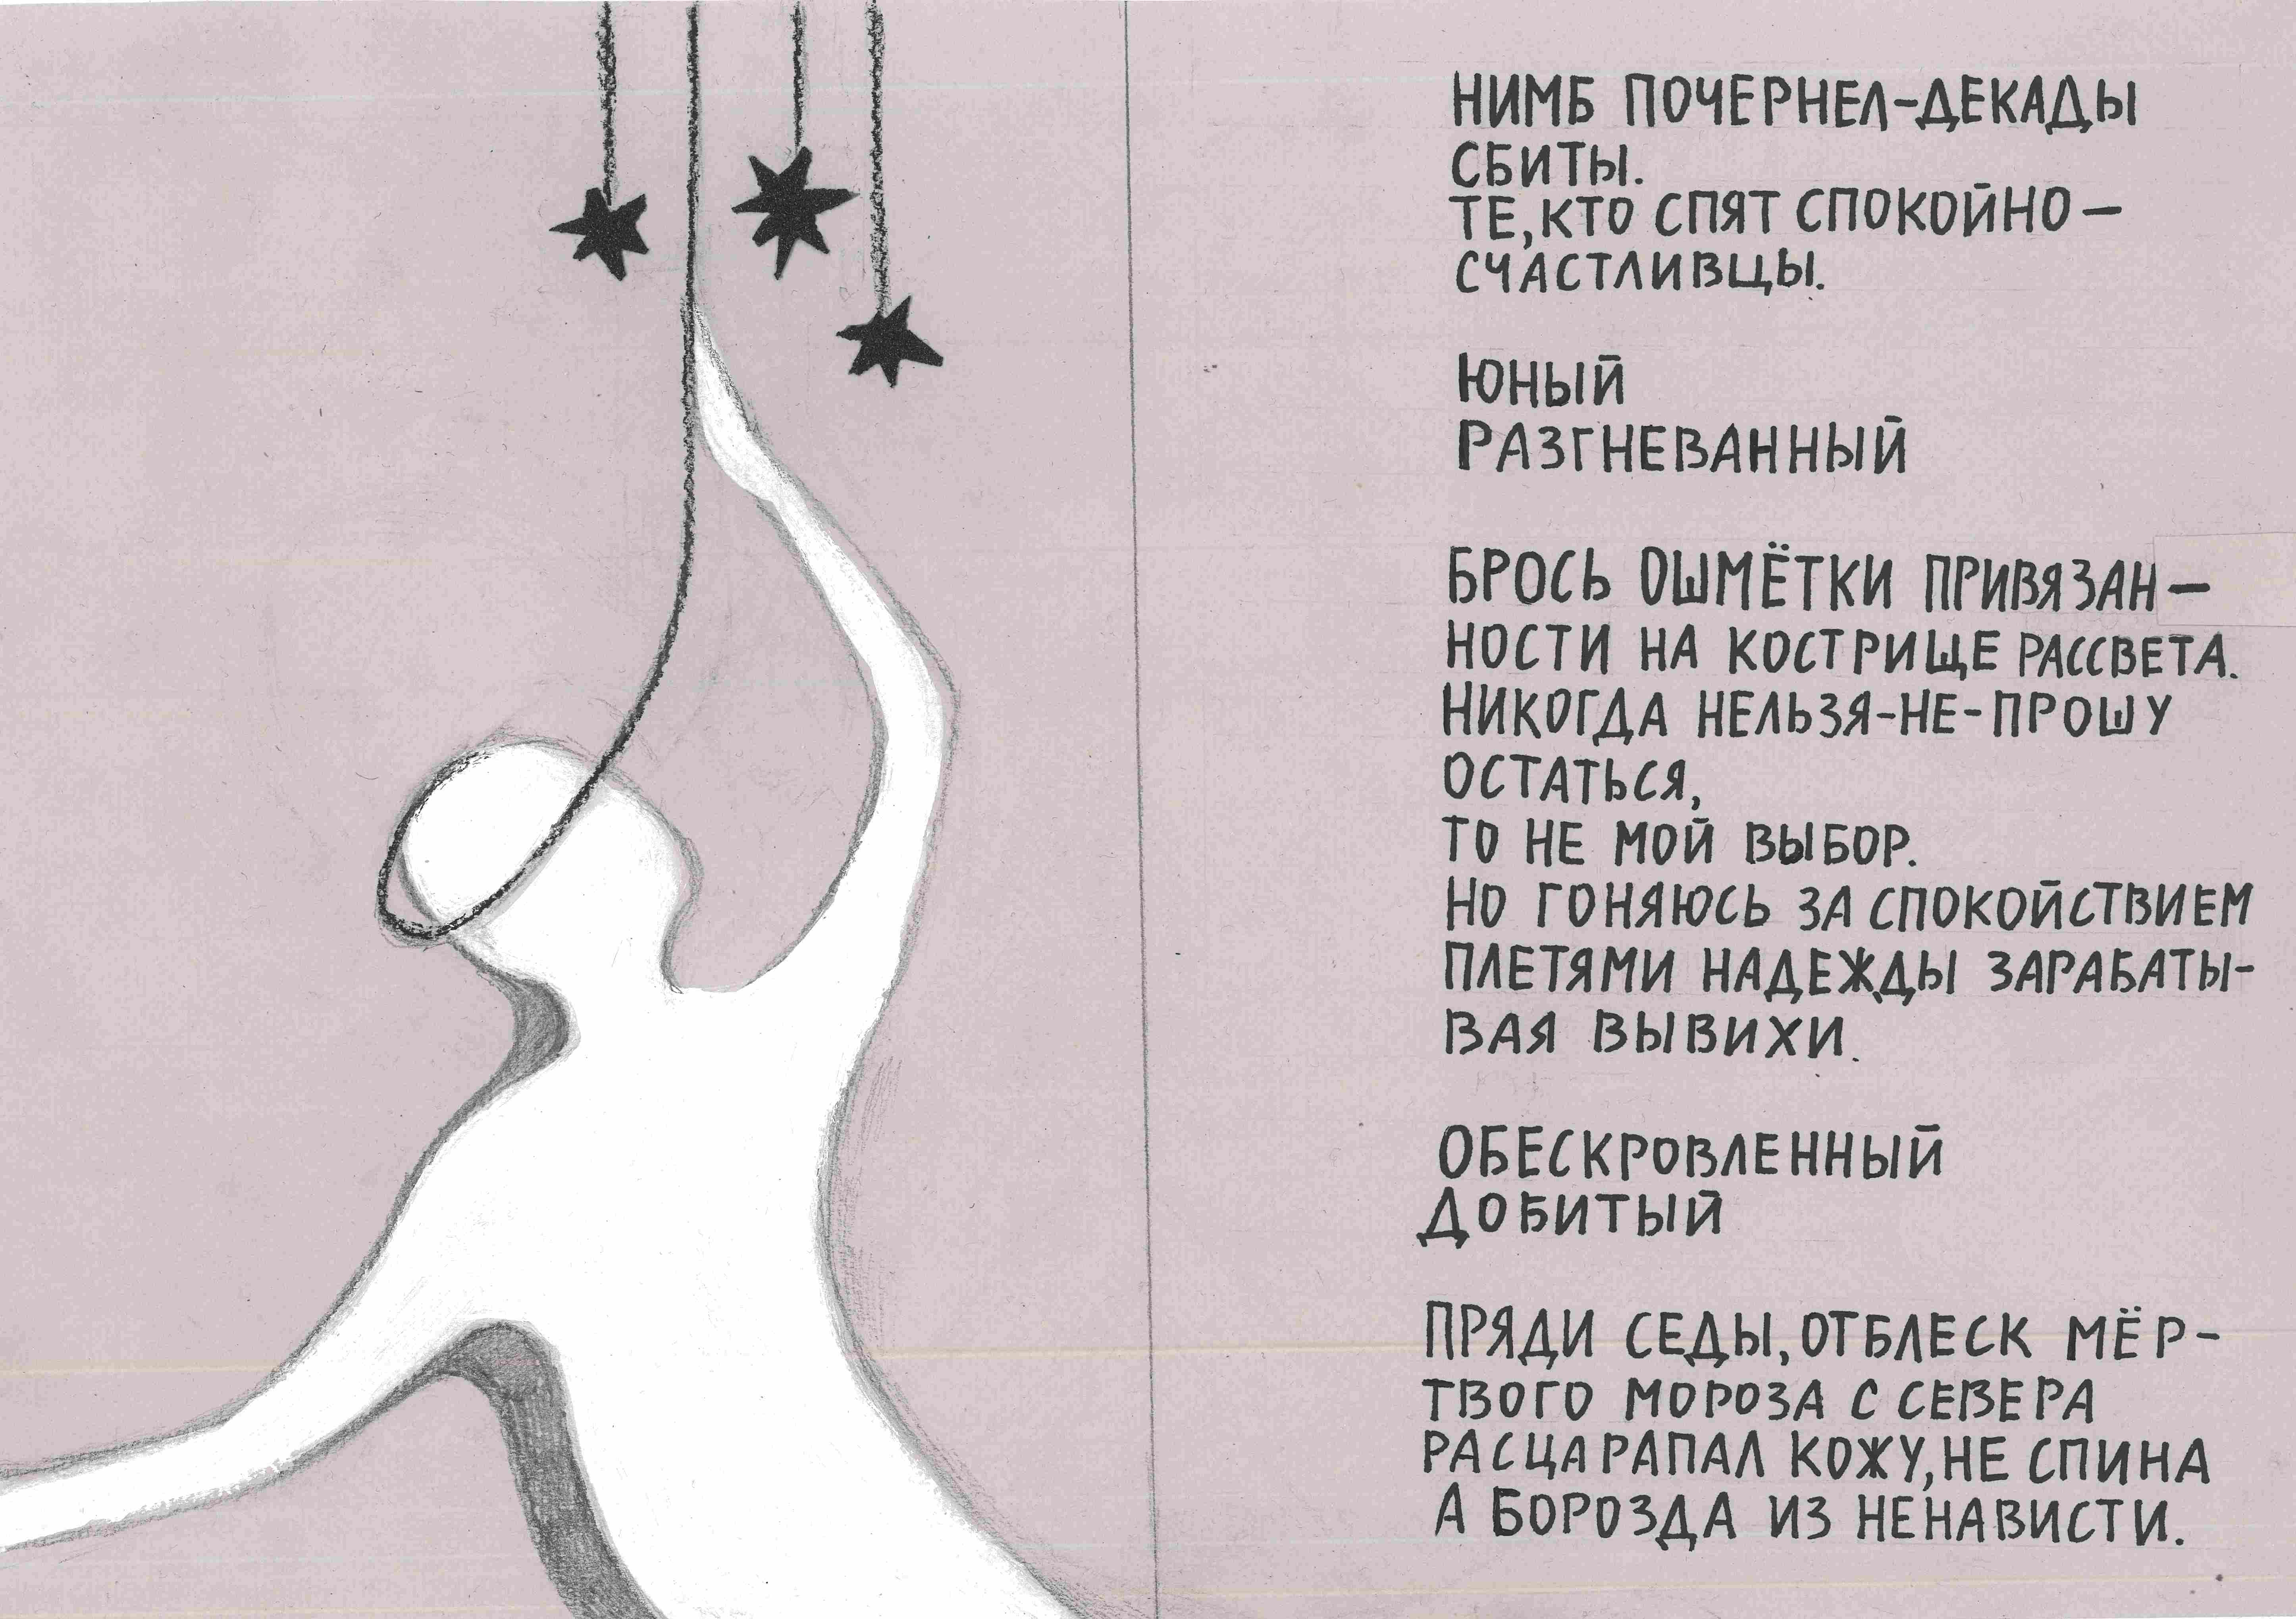 НИМБ ПОЧЕРНЕЛ-ДЕКАДЫ
СБИТЫ.
ТЕ, КТО СПЯТ СПОКОЙНО —
СЧАСТЛИВЦЫ.
ЮНЫЙ
РАЗГНЕВАННЫЙ
БРОСЬ ОШМЁТКИ ПРИВЯЗАН—
НОСТИ НА КОСТРИЩЕ РАССВЕТА.
НИКОГДА НЕЛЬЗЯ-НЕ-ПРОШУ
ОСТАТЬСЯ,
ТО НЕ МОЙ ВЫБОР.
НО ГОНЯЮСЬ ЗА СПОКОЙСТВИЕМ
ПЛЕТЯМИ НАДЕЖДЫ ЗАРАБАТЫ-
ВАЯ ВЫВИХИ.
ОБЕСКРОВЛЕННЫЙ
ДОБИТЫЙ
ПРЯДИ СЕДЫ, ОТБЛЕСК МЁР-
ТВОГО МОРОЗА С СЕВЕРА
РАСЦАРАПАЛ КОЖУ, НЕ СПИНА
А БОРОЗДА ИЗ НЕНАВИСТИ.